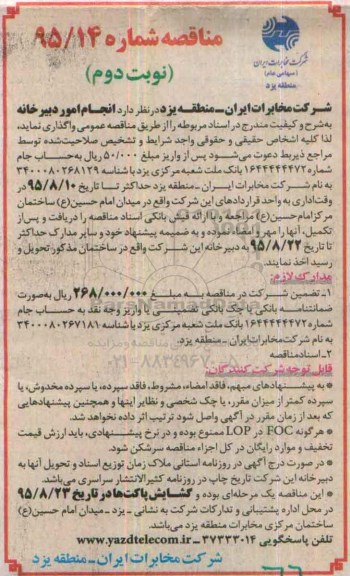 مناقصه شماره ۹۵/۱۴
(نوبت دوم)
شرکت مخابرات ایران
(سهامی عام)
منطقه یزد
شرکت مخابرات ایران - منطقه یزد در نظر دارد انجام امور دبیرخانه
به شرح و کیفیت مندرج در اسناد مربوطه را از طریق مناقصه عمومی واگذاری نماید،
لذا کلیه اشخاص حقیقی و حقوقی واجد شرایط و تشخیص صلاحیت شده توسط
مراجع ذیربط دعوت می‌شود پس از واریز مبلغ ۵۰/۰۰۰ ریال به حساب جام
شماره ۱۶۴۴۴۴۴۴۷۲ بانک ملت شعبه مرکزی یزد با شناسه ۳۴۰۰۰۸۰۲۶۸۱۲۹
به نام شرکت مخابرات ایران - منطقه یزد حداکثر تا تاریخ ۹۵/۸/۱۰ در
وقت اداری به واحد قراردادهای این شرکت واقع در میدان امام حسین(ع) ساختمان
مرکز امام حسین(ع) مراجعه و با ارائه فیش بانکی اسناد مناقصه را دریافت و پس از
تکمیل، آنها را مهر و امضاء نموده و به ضمیمه پیشنهاد خود و سایر مدارک حداکثر
تا تاریخ ۹۵/۸/۲۲ به دبیرخانه این شرکت واقع در ساختمان مذکور تحویل و
رسید اخذ نمایند.
مدارک لازم:
۱- تضمین شرکت در مناقصه به مبلغ ۲۶۸/۰۰۰/۰۰۰ ریال به صورت
ضمانتنامه بانکی یا چک بانکی تضمینی یا واریز وجه نقد به حساب جام
شماره ۱۶۴۴۴۴۴۴۷۲ بانک ملت شعبه مرکزی یزد با شناسه ۳۴۰۰۰۸۰۲۶۷۱۸۱
به نام شرکت مخابرات ایران - منطقه یزد.
۲- اسناد مناقصه
قابل توجه شرکت کنندگان:
* به پیشنهادهای مبهم، فاقد امضاء، مشروط، فاقد سپرده، یا سپرده مخدوش، یا
سپرده کمتر از میزان مقرر، یا چک شخصی و نظایر اینها و همچنین پیشنهادهایی
که بعد از زمان مقرر در آگهی واصل شود ترتیب اثر داده نخواهد شد.
* هرگونه FOC در LOP ممنوع بوده و در نرخ پیشنهادی، باید ارزش قیمت
تخفیف و موارد رایگان در کل اجزاء مناقصه سرشکن شود.
* در صورت درج آگهی در روزنامه استانی ملاک زمان توزیع اسناد و تحویل آنها به
دبیرخانه این شرکت تاریخ چاپ در روزنامه کثیرالانتشار سراسری می‌باشد.
* این مناقصه یک مرحله‌ای بوده و گشایش پاکت‌ها در تاریخ ۹۵/۸/۲۳
در محل اداره پشتیبانی و تدارکات شرکت به نشانی - یزد - میدان امام حسین(ع)
ساختمان مرکزی مخابرات منطقه یزد می‌باشد.
تلفن پاسخگویی ۳۷۲۳۳۰۱۴ - www.yazdtelecom.ir
شرکت مخابرات ایران - منطقه یزد